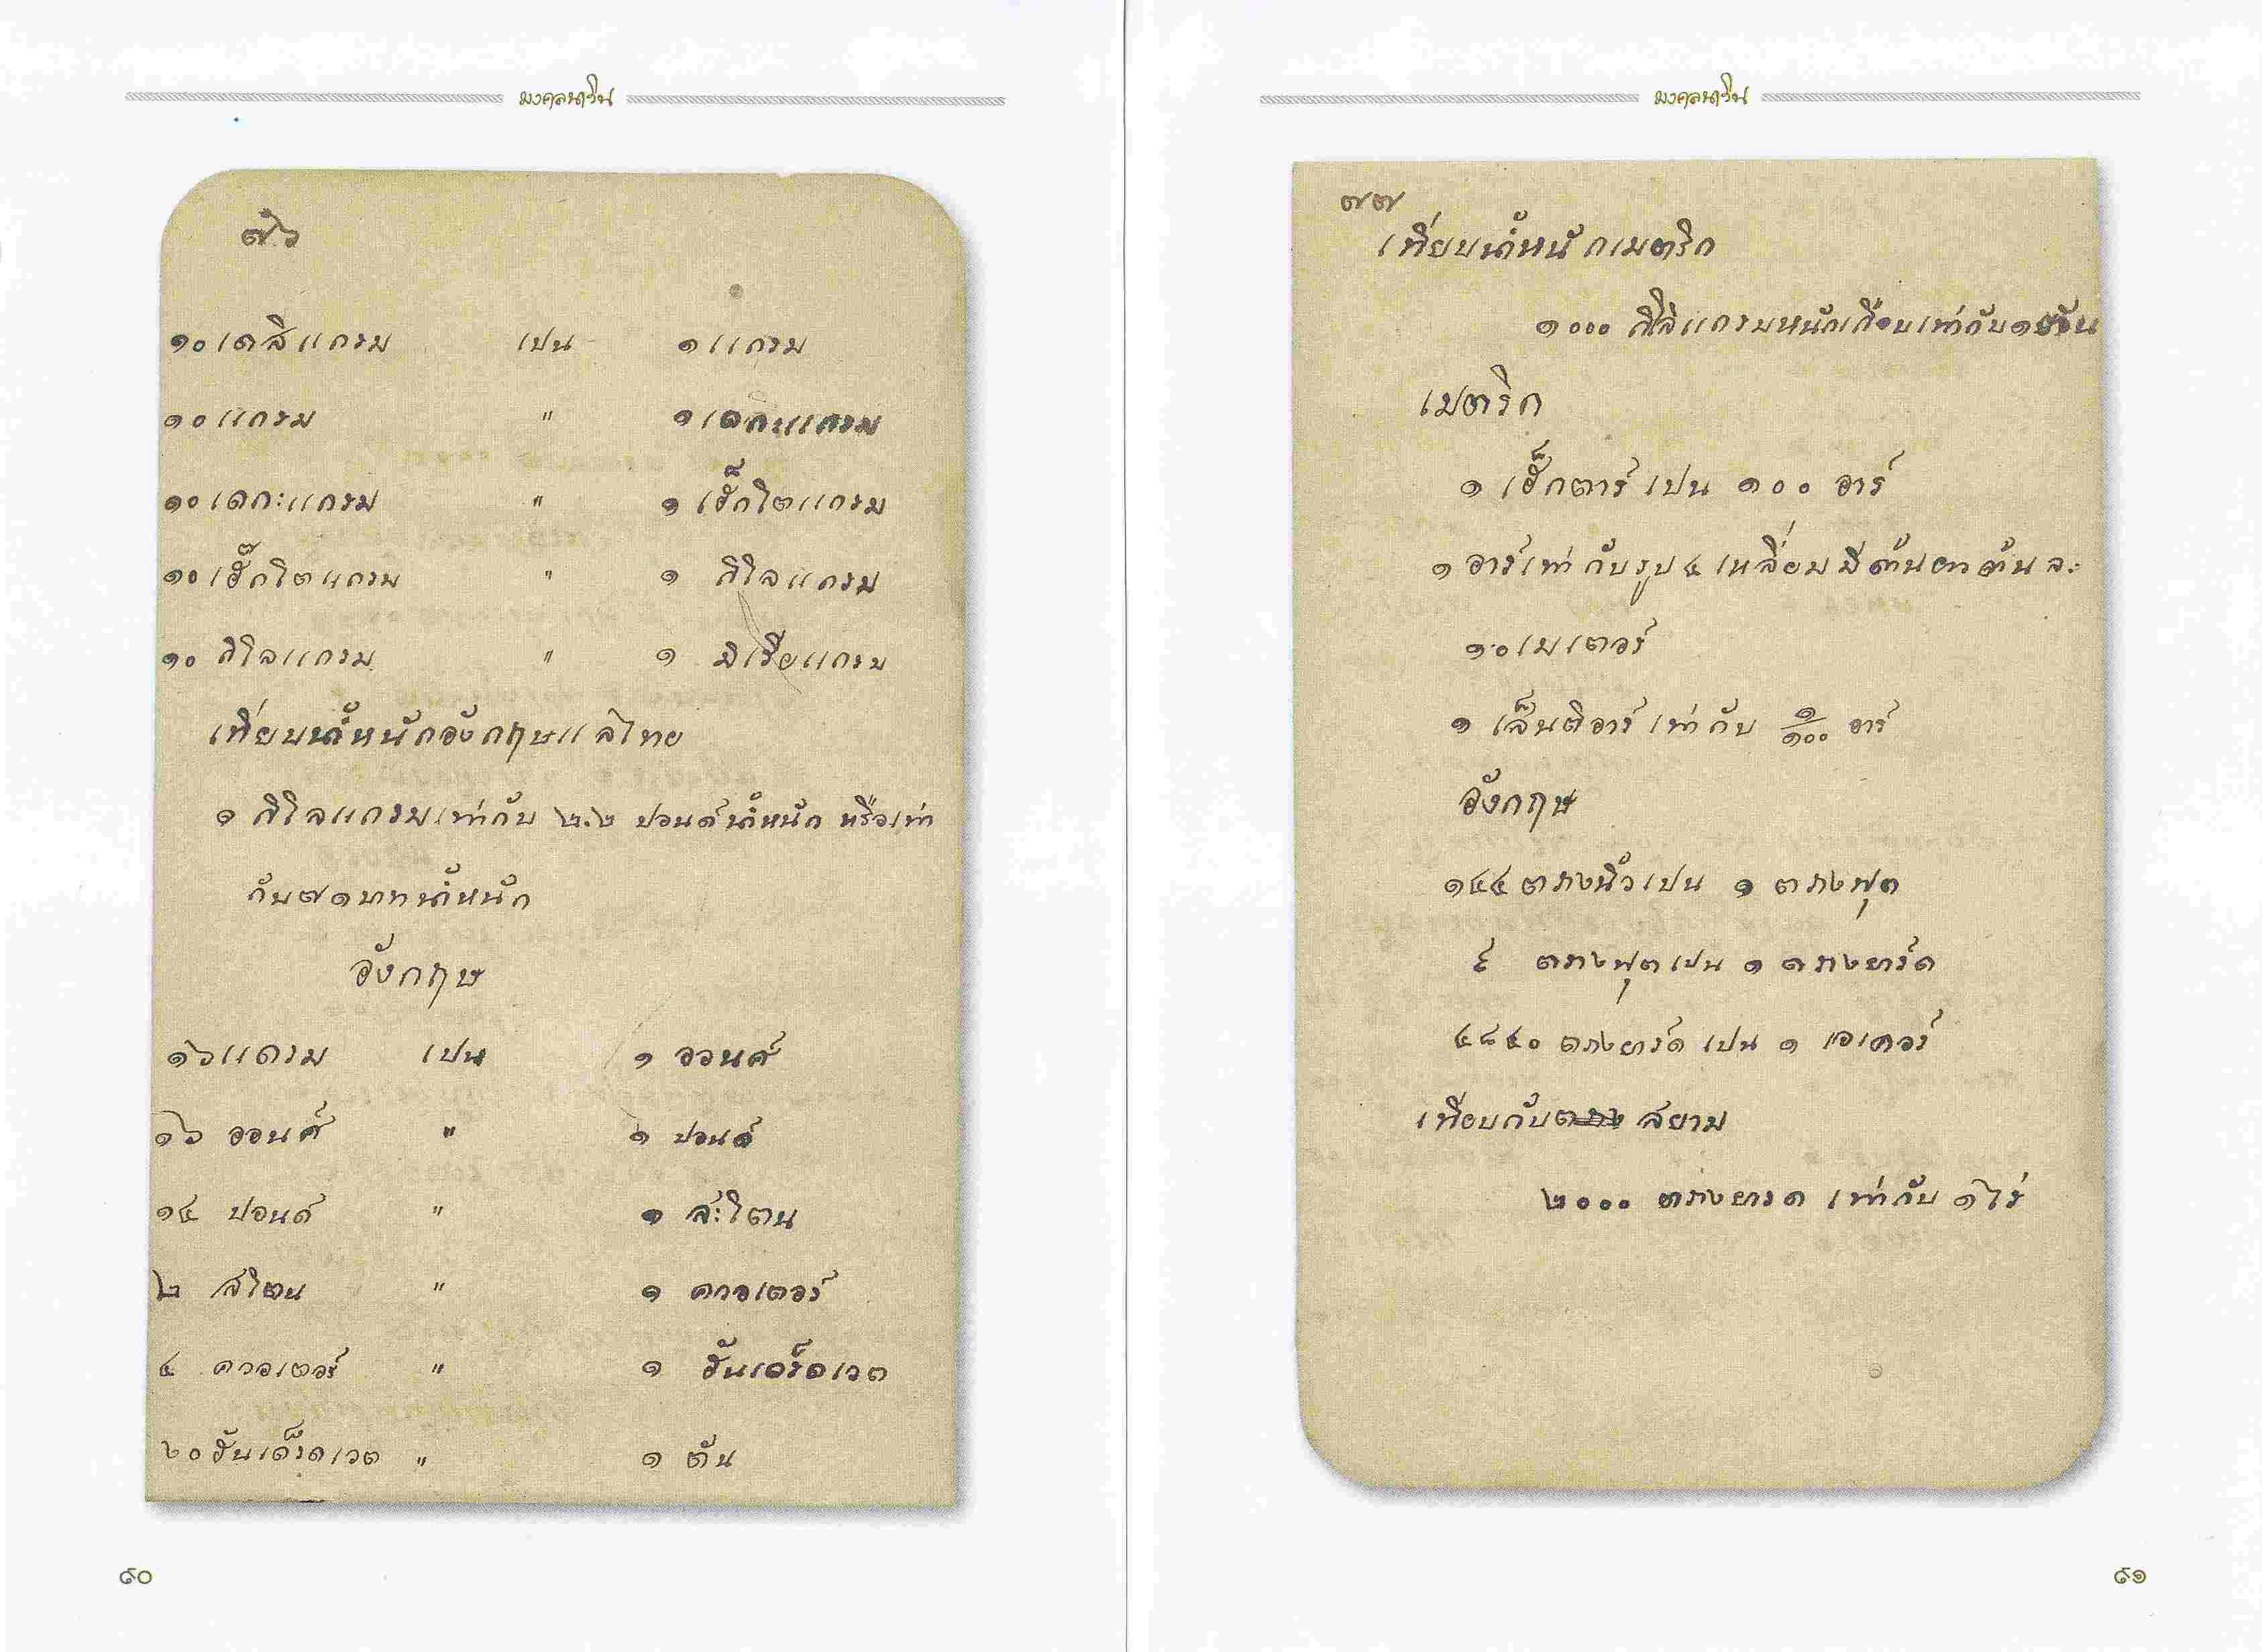 มงคลนาวิน
๗๖
๑๐ เดสิแกรม เปน ๑ แกรม
๑๐ แกรม " ๑ เดกะแกรม
๑๐ เดกะแกรม " ๑ เฮ็กโตแกรม
๑๐ เฮ็กโตแกรม " ๑ กิโลแกรม
๑๐ กิโลแกรม " ๑ มิเรียแกรม
เทียบน้ำหนักอังกฤษแลไทย
๑ กิโลแกรมเท่ากับ ๒.๒ ปอนด์น้ำหนัก หรือเท่า
กับ ๗๑ บาทน้ำหนัก
อังกฤษ
๑๖ แดรม เปน ๑ ออนศ์
๑๖ ออนศ์ " ๑ ปอนด์
๑๔ ปอนด์ " ๑ สะโตน
๒ สโตน " ๑ ควอเตอร์
๔ ควอเตอร์ " ๑ ฮันเดร็ดเวต
๒๐ ฮันเดร็ดเวต " ๑ ตัน
๙๐
มงคลนาวิน
๗๗
เทียบน้ำหนักเมตริก
๑๐๐๐ กิโลแกรมหนักเกือบเท่ากับ ๑ ตัน
เมตริก
๑ เฮ็กตาร์ เปน ๑๐๐ อาร์
๑ อาร์เท่ากับรูป ๔ เหลี่ยมมีด้านยาวด้านละ
๑๐ เมเตอร์
๑ เซ็นติอาร์ เท่ากับ ๑/๑๐๐ อาร์
อังกฤษ
๑๔๔ ตางนิ้วเปน ๑ ตางฟุต
๙ ตางฟุตเปน ๑ ตางยาร์ด
๔๘๔๐ ตางยาร์ด เปน ๑ เอเคอร์
เทียบกับ สยาม
๒๐๐๐ ตางยารด เท่ากับ ๑ ไร่
๙๑